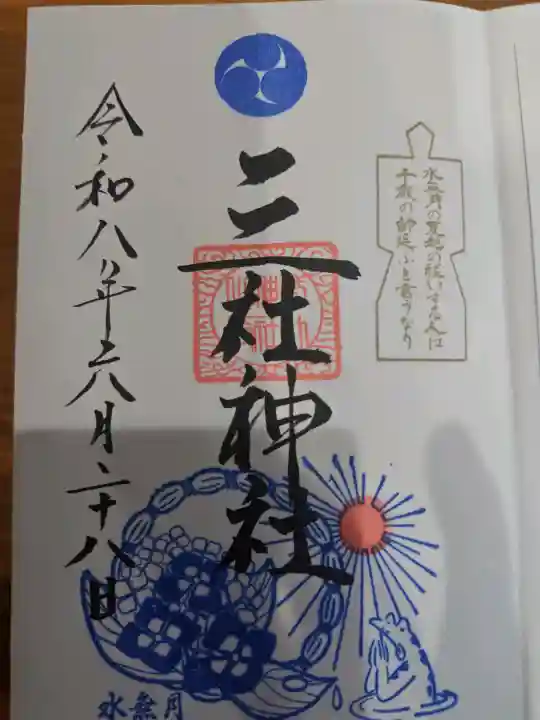 水無月の夏越の祓いする人は
千歳の命延ぶと言うなり
三社神社
令和八年六月二十八日
水無月